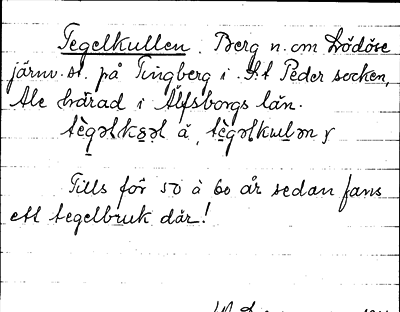 Tegelkullen. Berg n. om Lödöse
järnv. st. på Tingberg i S:t Peder socken,
Ale härad i Älfsborgs län.
Tills för 50 à 60 år sedan fans
ett tegelbruk där!